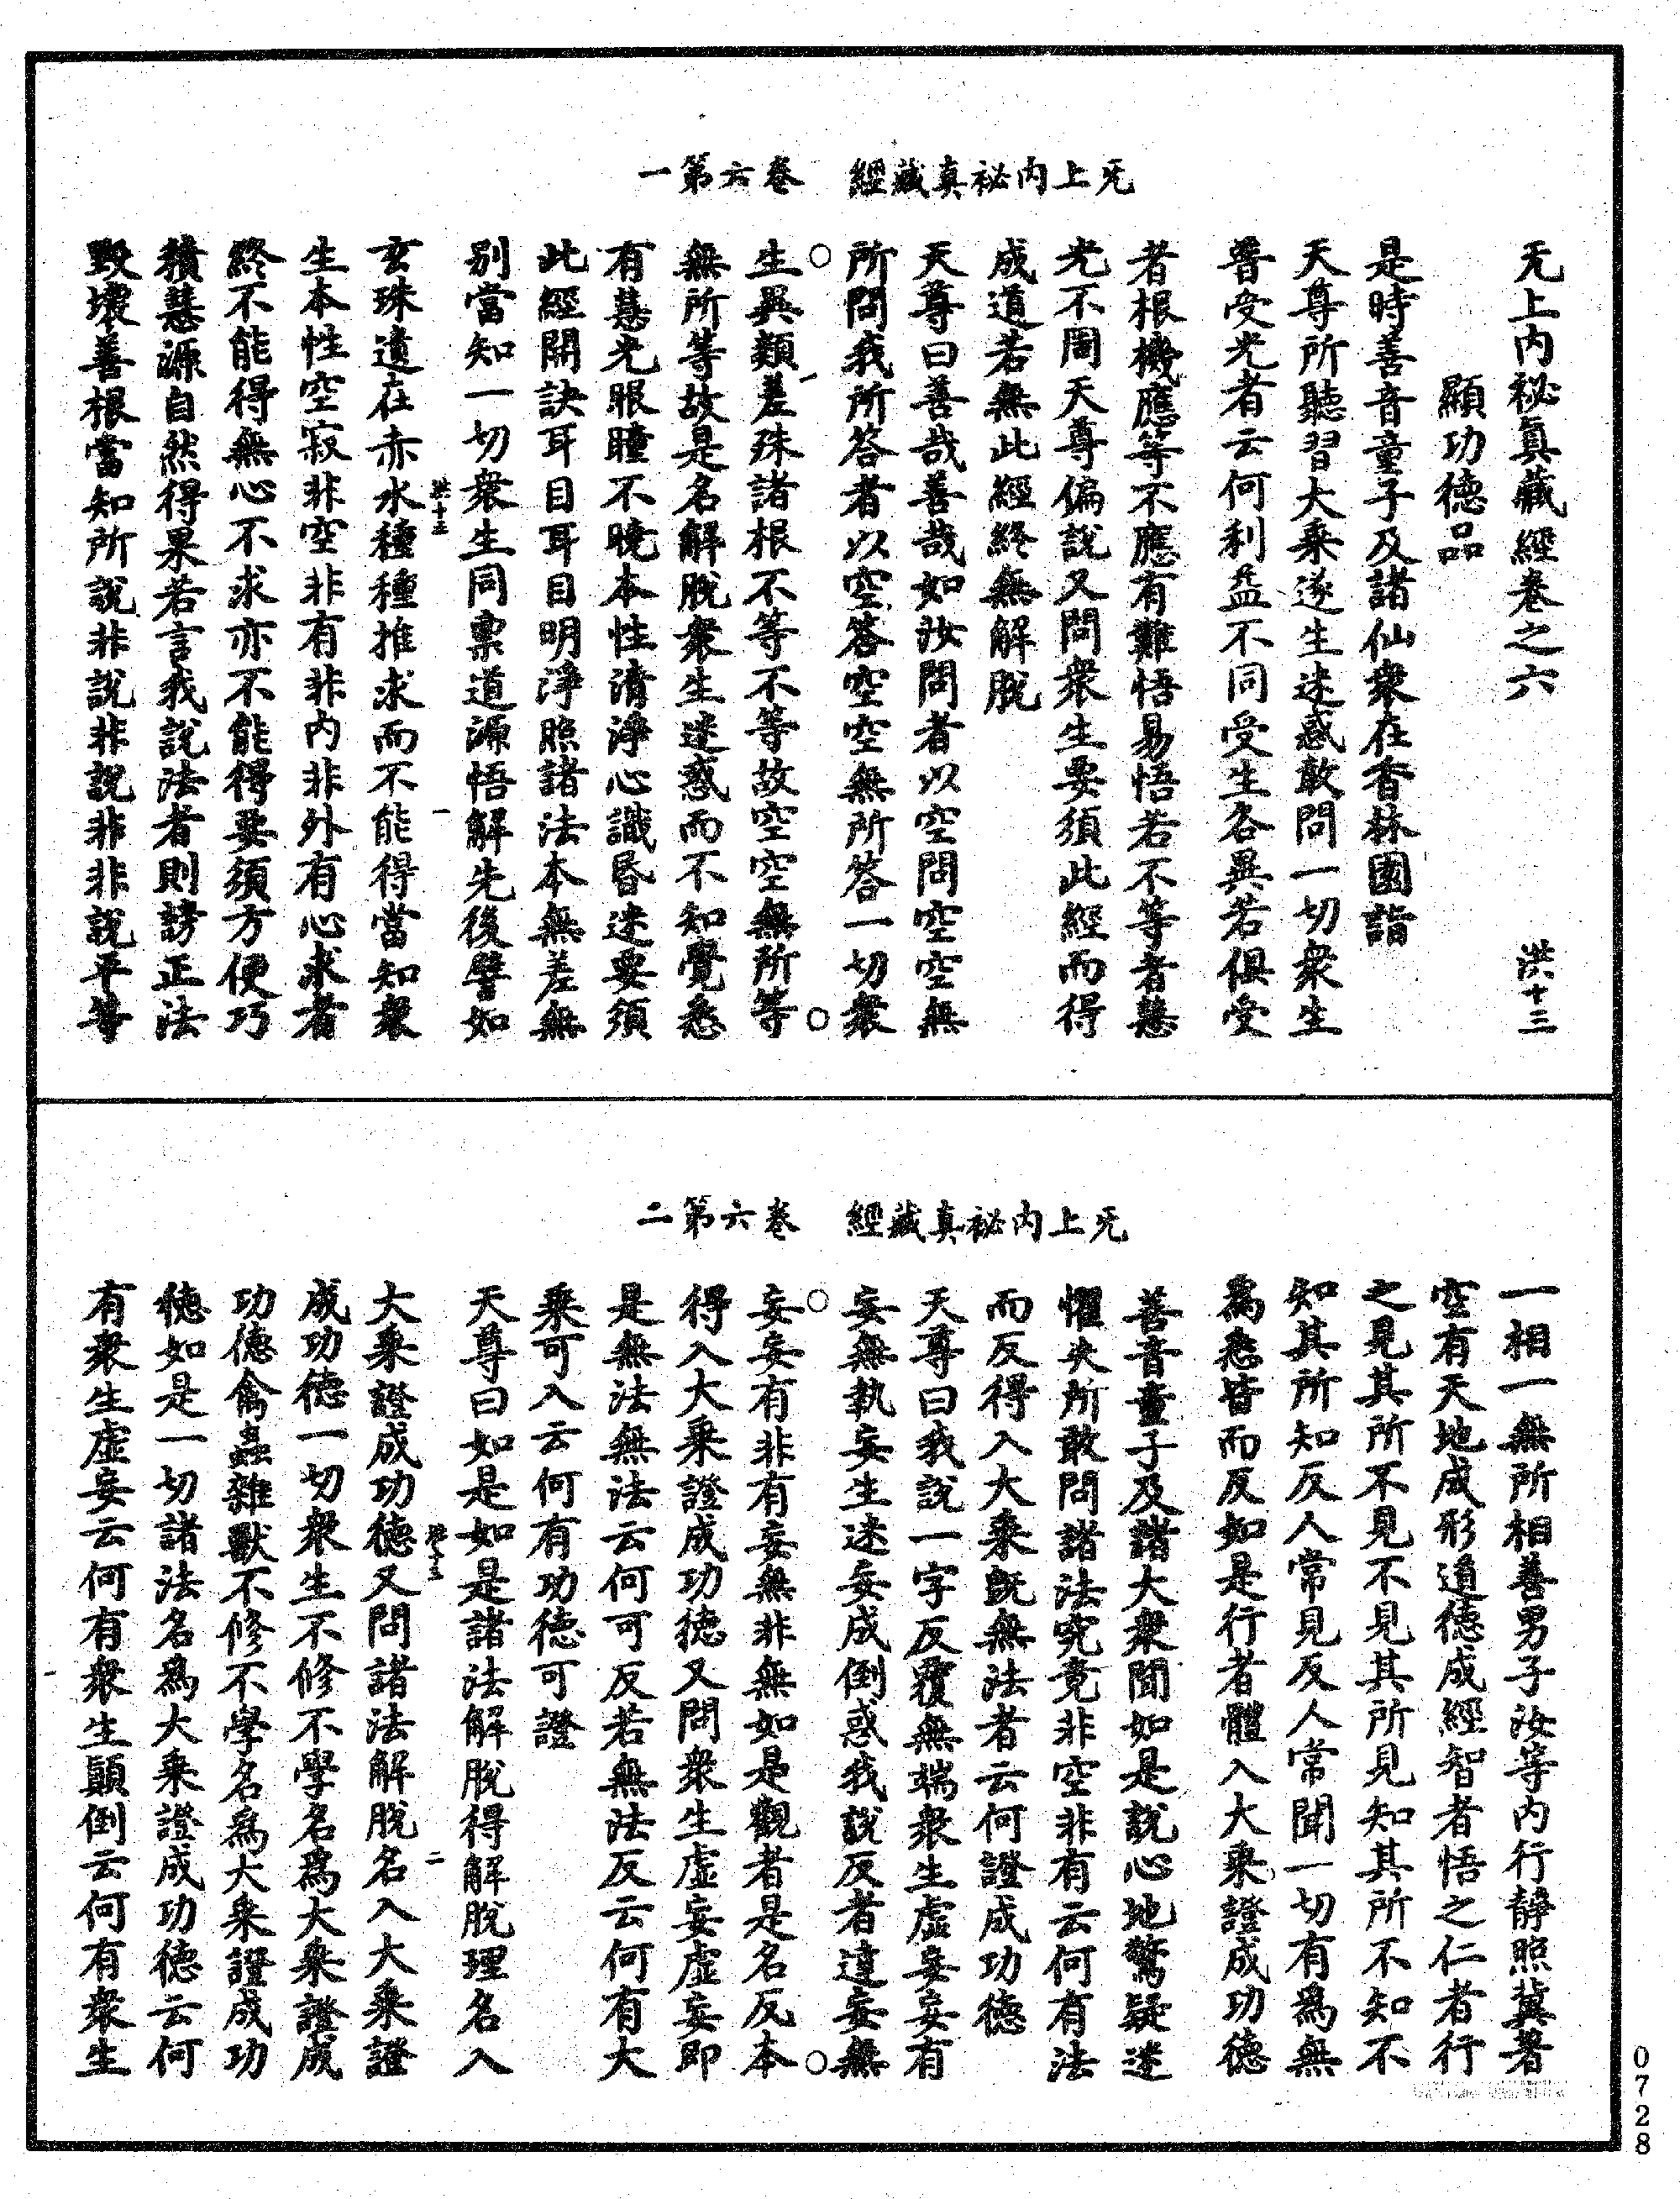 无上内祕真藏經　卷六第一
无上内祕真藏經卷之六　洪十三
顯功德品
是時善音童子及諸仙衆在香林園詣
天尊所聽習大乘遂生迷惑敢問一切衆生
普受光者云何利益不同受生各異若俱受
者根機應等不應有難悟易悟若不等者慧
光不周天尊偏說又問衆生要須此經而得
成道若無此經終無解脫
天尊曰善哉善哉如汝問者以空問空空無
所問我所答者以空答空空無所答一切衆
生異類差殊諸根不等不等故空空無所等
無所等故是名解脫衆生迷惑而不知覺悉
有慧光眼瞳不曉本性清淨心識昏迷要須
此經開訣耳目耳目明淨照諸法本無差無
別當知一切衆生同稟道源悟解先後譬如
洪十三　一
玄珠遺在赤水種種推求而不能得當知衆
生本性空寂非空非有非内非外有心求者
終不能得無心不求亦不能得要須方便巧
積慧源自然得果若言我說法者則謗正法
毀壞善根當知所說非說非說非非說平等
无上内祕真藏經　卷六第二
一相一無所相善男子汝等内行靜照冀著
空有天地成形道德成經智者悟之仁者行
之見其所不見不見其所見知其所不知不
知其所知反人常見反人常聞一切有爲無
爲悉皆而反如是行者體入大乘證成功德
善音童子及諸大衆聞如是說心地驚疑迷
懼失所敢問諸法究竟非空非有云何有法
而反得入大乘旣無法者云何證成功德
天尊曰我說一字反覆無端衆生虛妄妄有
妄無執妄生迷妄成倒惑我說反者達妄無
妄妄有非有妄無非無如是觀者是名反本
得入大乘證成功德又問衆生虛妄虛妄即
是無法無法云何可反若無法反云何有大
乘可入云何有功德可證
天尊曰如是如是諸法解脫得解脫理名入
洪十三　二
大乘證成功德又問諸法解脫名入大乘證
成功德一切衆生不修不學名爲大乘證成
功德禽蟲雜獸不修不學名爲大乘證成功
德如是一切諸法名爲大乘證成功德云何
有衆生虛妄云何有衆生顛倒云何有衆生
0728